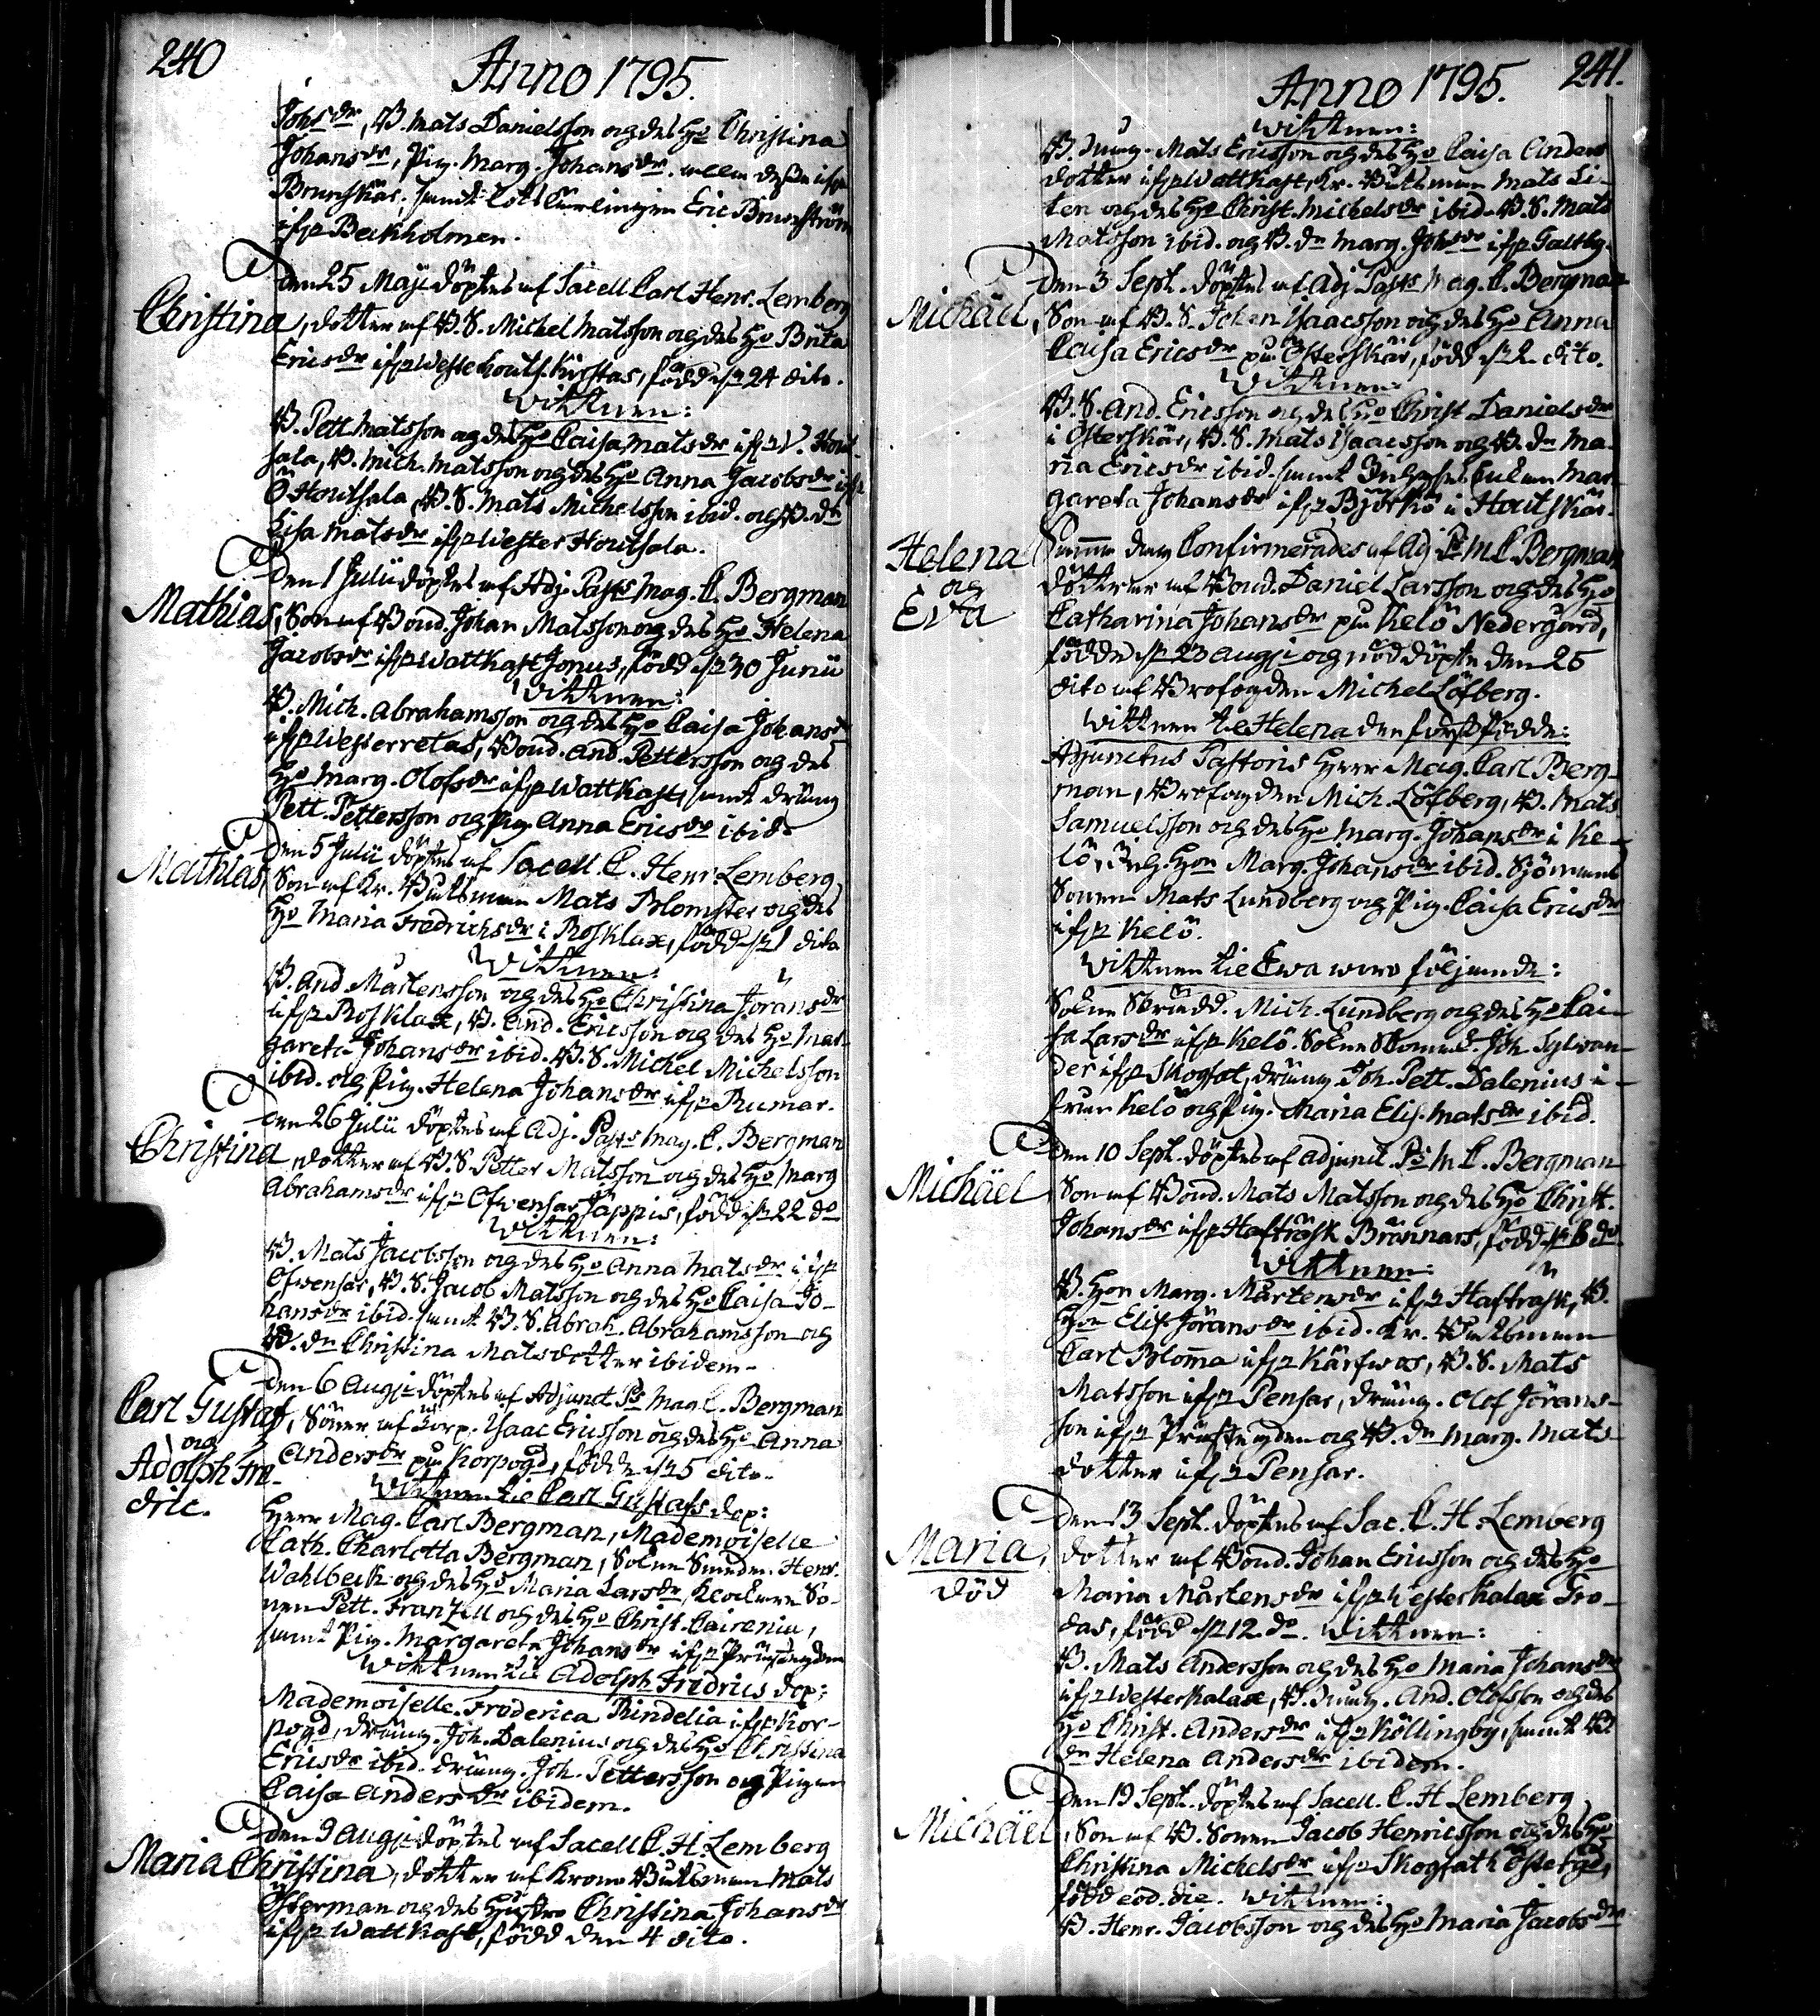 240
Anno 1795.
Johsdr, B. Mats Danielsson och des Ho Christina
Johansdr, Pig. Marg. Johansdr. alla desse ifrån
Brunskär, samt Lots Lärlingen Eric Brunström
ifrån Beckholmen.
Den 25 Maji döptes af Sacell Carl Henr. Lemberg
Christina, dotter af B. S. Michel Matsson och des Ho Brita
Ericsdr ifrån Westerhoutskär, född den 24 dito.
Wittnen:
B. Pett Matsson och des Ho Caisa Matsdr ifrån W. Hout-
sala, B. Mich. Matsson och des Ho Anna Jacobsdr ifrån
Ö Houtsala, B. S. Mats Michelsson ibid. och B. dr
Lisa Matsdr ifrån Wester Houtsala.
Den 1 Julii döptes af Adj. Pasts Mag. C. Bergman
Mathias, Son af Bond. Johan Matsson och des Ho Helena
Jacobsdr ifrån Wattkast Jonus, född den 30 Junii
Wittnen:
B. Mich. Abrahamsson och des Ho Caisa Johansdr
ifrån Westerretas, Bond. And. Pettersson och des
Ho Marg. Olofsdr ifrån Wattkast, samt dräng
Pett. Pettersson och Pig. Anna Ericsdr ibid.
Den 5 Julii döptes af Sacell. C. Henr. Lemberg
Mathias, Son af Kr. Båtsman Mats Blomster och des
Ho Maria Fredrichsdr i Rosklax, född den 1 dito
Wittnen:
B. And Mårtensson och des Ho Christina Joransdr
ifrån Rosklax, B. And. Ericsson och des Ho Mar-
gareta Johansdr ibid. B. S. Michel Michelsson
ibid. och Pig. Helena Johansdr ifrån Rumar.
Den 26 Julii döptes af Adj. Pasts Mag. C. Bergman
Christina, dotter af B. S. Petter Matsson och des Ho Marg
Abrahamsdr ifrån Ofvensar Jäppis, född den 22 do
Wittnen:
B. Mats Jacobsson och des Ho Anna Matsdr ifrån
Ofvensar, B. S. Jacob Matsson och des Ho Caisa Jo-
hansdr ibid. samt B. S. Abrah. Abrahamsson och
B. dr Christina Matsdotter ibidem.
Den 6 Augusti döptes af Adjunct Ps Mag C. Bergman
Carl Gustaf, Söner af Korp. Isaac Ericsson och des Ho Anna
och
Andersdr på Korpogd, födde den 5 dito.
Adolph Fre-
dric.
Wittnen til Carl Gustafs dop:
Herr Mag. Carl Bergman, Mademoiselle
Cath. Charlotta Bergman, Sokne Smeden. Henr.
Wahlbeck och des Ho Maria Larsdr, Klockare So-
nen Pett. Franzell och des Ho Christ. Cairenia,
samt Pig. Margareta Johansdr ifrån Prästegden
Wittnen til Adolph Fredrics dop:
Mademoiselle Frederica Rindelia ifrån Kor-
pogd, dräng. Joh. Dalenius och des Ho Christina
Ericsdr ibid. dräng. Joh. Pettersson och Pigan
Caisa Andersdr ibidem.
Den 9 Augusti döptes af Sacell C. H. Lemberg
Maria Christina, dotter af Krono Båtsman Mats
Österman och des Hustro Christina Johansdr
ifrån Wattkast, född den 4 dito.
241.
Anno 1795.
Wittnen:
B. Dräng. Mats Ericsson och des Ho Caisa Anders
dotter ifrån Wattkast, Kr. Båtsman Mats Li-
ten och des Ho Christ. Michelsdr ibid. B. S. Mats
Matsson ibid. och B. dr Marg. Johsdr ifrån Galtby.
Den 3 Sept. döptes af Adj. Pasts Mag. C. Bergman
Michael, Son af B. S. Johan Isaacsson och des Ho Anna
Caisa Ericsdr på Österskär, född den 2 dito.
Wittnen:
B. S. And. Ericsson och des Ho Christ Danielsdr
i Österskär, B. S. Mats Isaacsson och B. dr Ma-
ria Ericsdr ibid. samt Inhyses Enkan Mar-
gareta Johansdr ifrån Björkö i Houtskär.
Helena
och
Eva
Samma dag Confirmerades af Adj Ps M C Bergman
döttrar af Bond. Daniel Larsson och des Ho
Catharina Johansdr på Kelö Nedergård,
födde den 23 Augusti och nöddöpte den 25
dito af Brofogden Michel Löfberg.
Wittnen til Helena den förstfödde:
Adjunctus Pastoris Herr Mag. Carl Berg-
man, Brofogden Mich. Löfberg, B. Mats
Samuelsson och des Ho Marg. Johansdr i Ke-
lö, Inh. Hon Marg. Johansdr ibid. Sjömans
Sonen Mats Lundberg och Pig. Caisa Ericsdr
ifrån Kelö.
Wittnen til Ewa woro följande:
Sokne Skrädd. Mich. Lundberg och des Ho Cai-
sa Larsdr ifrån Kelö. Sokne Skomak. Joh. Sylvan-
der ifrån Skogfat, dräng Joh. Pett. Dalenius i-
från Kelö och Pig. Maria Elis. Matsdr ibid.
Den 10 Sept. döptes af Adjunct. Ps M C. Bergman
Michael Son af Bond. Mats Matsson och des Ho Christ.
Johansdr ifrån Hafträsk Brännars, född den 6 do
Wittnen:
B. Hon Marg. Mårtensdr ifrån Hafträsk, B.
Hon Elis. Jöransdr ibid. Kr. Båtsman
Carl Bloma ifrån Kärfwas, B. S. Mats
Matsson ifrån Pensar, dräng. Olof Jörans-
son ifrån Prästegden och B. dr Marg. Mats
dotter ifrån Pensar.
Den 13 Sept. döptes af Sac. C. H. Lemberg
Maria, dotter af Bond. Johan Ericsson och des Ho
död
Maria Mårtensdr ifrån Westerkalax Gro-
das, född den 12. do. Wittnen:
B. Mats Andersson och des Ho Maria Johansdr
ifrån Westerkalax, B. dräng. And. Olofsson och des
Ho Christ. Andersdr ifrån Köllingby, samt B
dr Helena Andersdr ibidem.
Den 19 Sept. döptes af Sacell. C. H Lemberg
Michael, Son af B. Sonen Jacob Henricsson och des Ho
Christina Michelsdr ifrån Skogfath Östergd,
född eod. die. Wittnen:
B. Henr. Jacobsson och des Ho Maria Jacobsdr